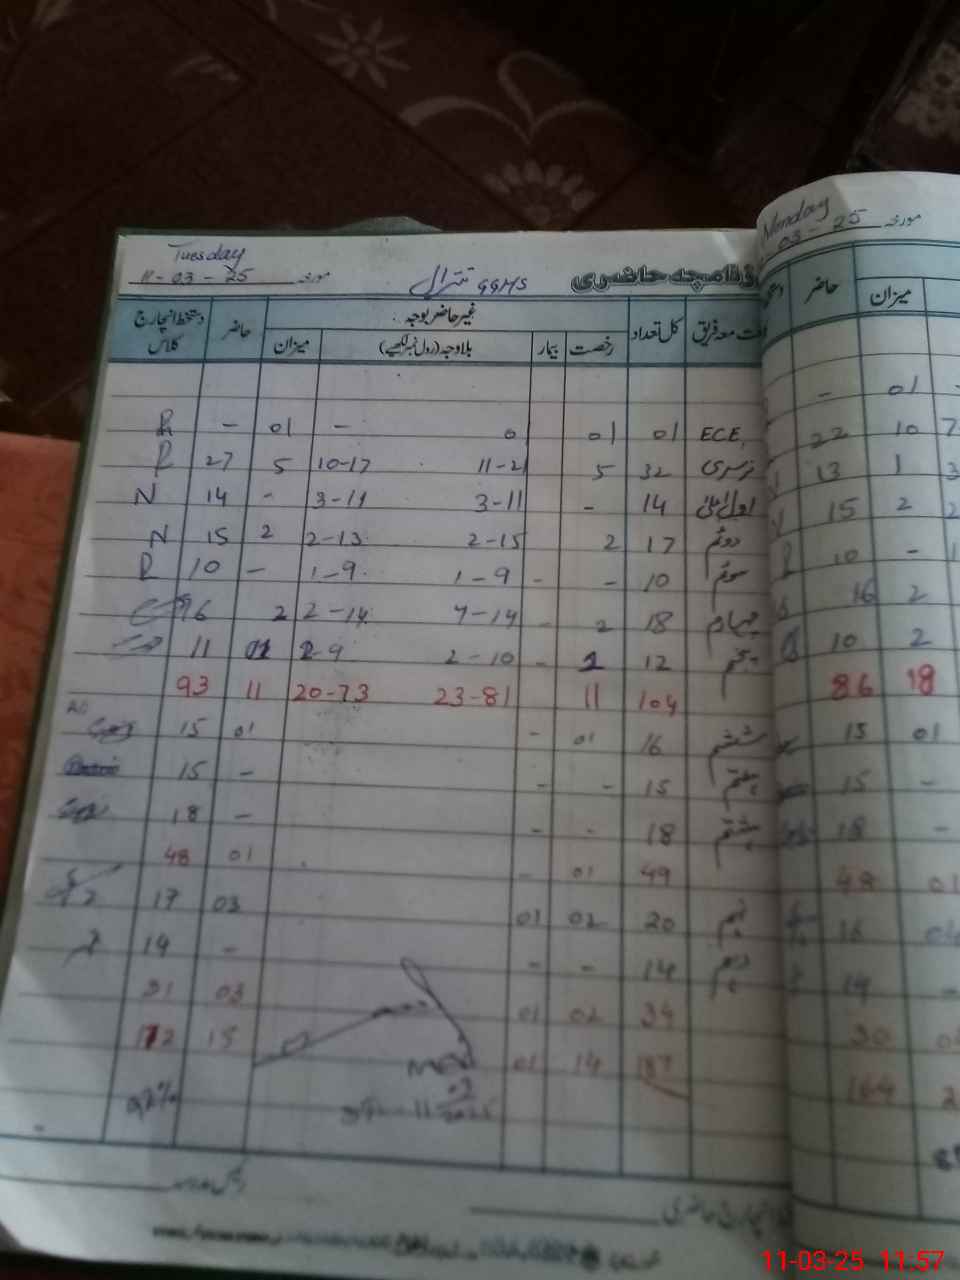 Tuesday
مورخہ 11-03-25
روزنامچہ حاضری GGHS
غیر حاضر بوجہ
جماعت معہ فریق کل تعداد رخصت بیمار بلاوجہ (رول نمبر لکھیے) میزان حاضر دستخط انچارج کلاس
ECE 01 01 0 - 01 - R
نرسری 32 5 11-21 10-17 5 27 R
اول اعلیٰ 14 - 3-11 3-11 - 14 N
دوئم 17 2 2-15 2-13 2 15 N
سوئم 10 - - 1-9 1-9 - 10 R
چہارم 18 2 - 4-14 2-14 2 16
پنجم 12 1 - 2-10 2-9 01 11
104 11 23-81 20-73 11 93
ششم 16 01 - 01 15
ہفتم 15 - - - 15
ہشتم 18 - - - 18
49 01 - 01 48
نہم 20 02 01 03 17
دہم 14 - - - 14
34 02 01 03 31
187 14 01 15 172
92%
Monday
مورخہ 03-25
میزان حاضر
01 -
10 22
1 13
2 15
- 10
2 16
2 10
18 86
01 15
- 15
- 18
01 48
16
- 14
30
164
11-03-25 11:57